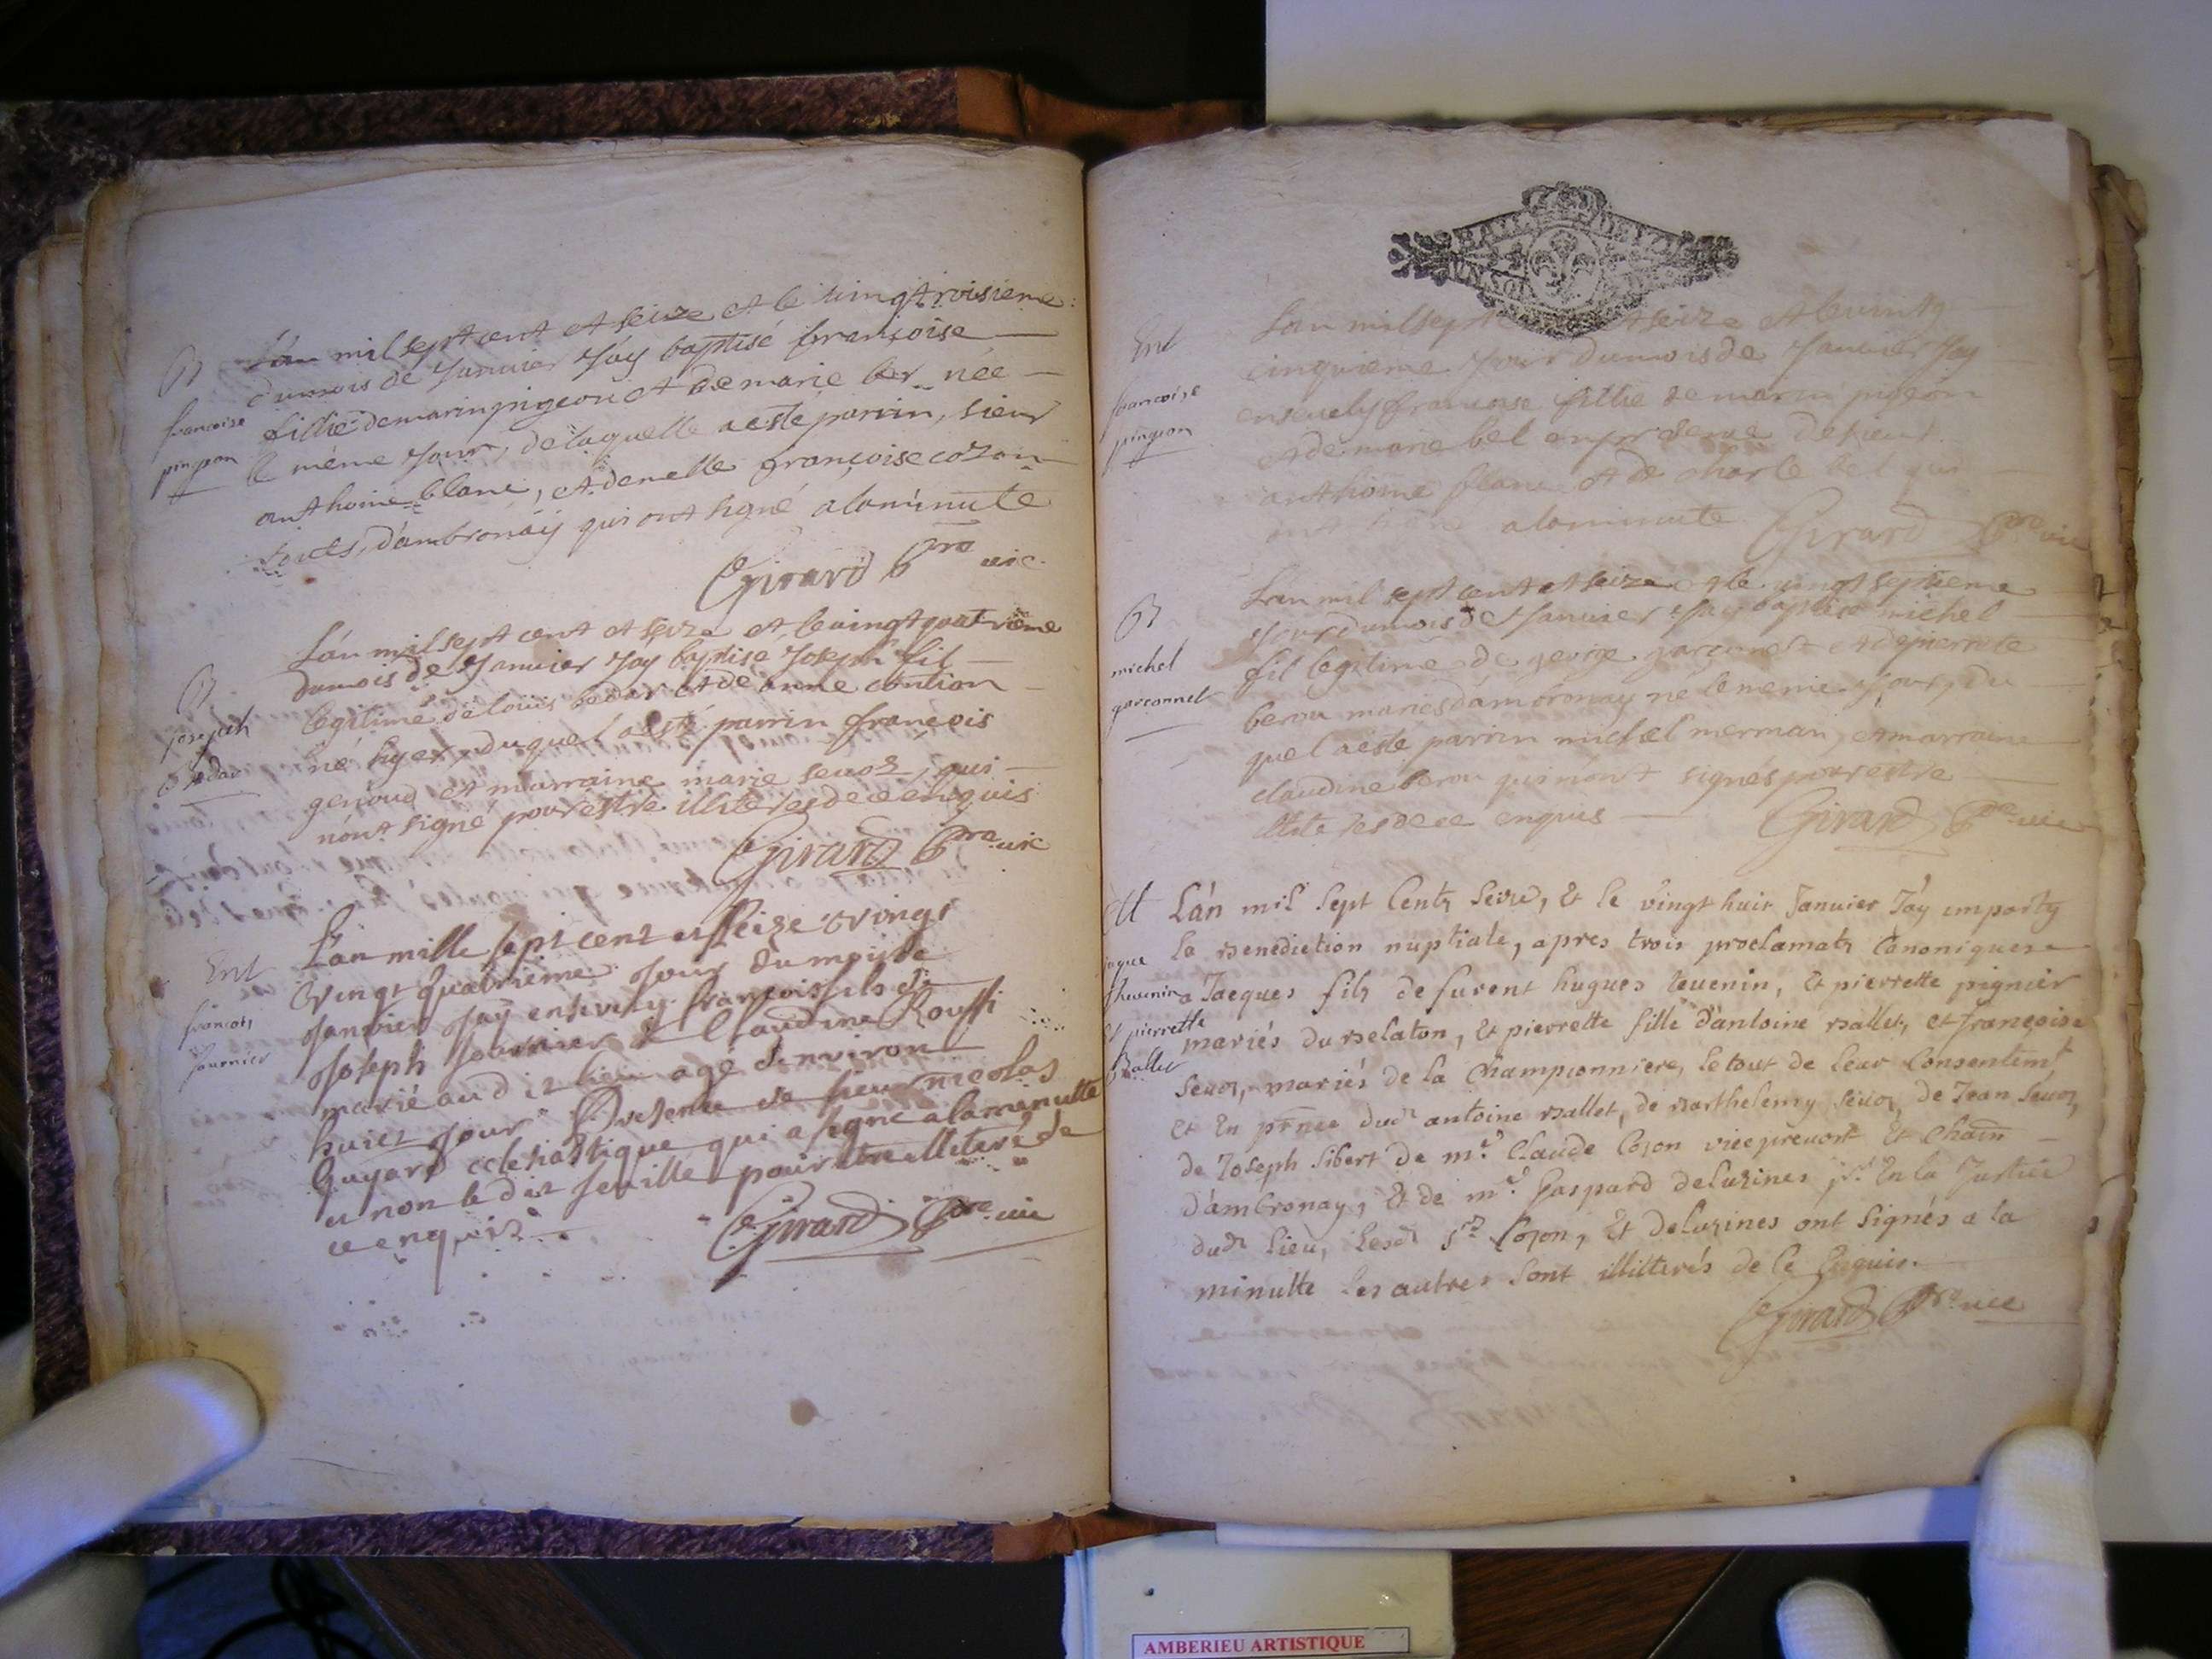 B
francoise
pingeon
L'an mil sept cent et seize et le vingtroisieme
dumois de Januier J'ay baptisé françoise
fillie de marin pigeon et de marie bel née
le même Jour, de laquelle a esté parrin, sieur
anthoine blanc, et demelle françoise cozon
touts, d'ambronäy qui ont signé alaminute
Girard pre uic
B
joseph
bedar
L'an mil sept cent et seize et le uingt quatrieme
dumois de Januier J'ay baptise Joseph fil
legitime de loüis bedar et de anne
né hyer, duquel a esté parrin françois
genoud et marraine marie seuoz, qui
n'ont signé pour estre illiteres de ce enquis
Girard pre uic
Ent
francois
fournier
L'an mille sept cent et seize
vingt quatrieme Jour du mois de
Januier J'ay enseuely francois fils de
Joseph fournier & Claudine Roussi
marié audit lieu agé d'environ
huict Jour Presence de sieur nicolas
Guyard eclesiastique qui a signé alaminutte
et non ledit pour etre illiteré de
ce enquis
Girard pre uic
Ent
francoise
pingeon
L'an mil sept seize et le uinty
cinquieme Jour dumois de Januier J'ay
enseuely francoise fillie de marin pigeon
et de marie bel en presence de sieur
anthoine blanc et de charle bel qui
ont signé alaminute
Girard pre uic
B
michel
garconnet
L'an mil sept cent et seize et le uingt septieme
Jour dumois de Januier J'ay baptisé michel
fil legitime de george garconet et de pierrete
berou mariés d'ambronay né le meme Jour, du
quel a esté parrin michel merman, et marraine
claudine berou qui n'ont signés pour estre
illiteres de ce enquis
Girard pre uic
M
jaque
theuenin
et pierrette
Ballet
L'an mil sept Cents seize, et le vingt huit Januier J'ay imparty
la Benediction nuptiale, apres trois proclamats Canoniques
a Jacques fils de furent hugues teuenin, et pierrette pignier
mariés du Belaton, et pierrette fille d'antoine Ballet, et françoise
Seuoz, mariés de la Championniere, le tout de leur Consentemt
et en pñce dudt antoine Ballet, de Barthelemy Seuoz, de Jean Seuoz,
de Joseph Sibert de me Claude Cozon viceprevost et Chatn
d'ambronay, et de me Gaspard deluzines en la Justice
dudt lieu, lesdt srs Cozon, et deluzines ont signés a la
minutte les autres sont illitterés de ce Enquis.
Girard pre uic
AMBERIEU ARTISTIQUE